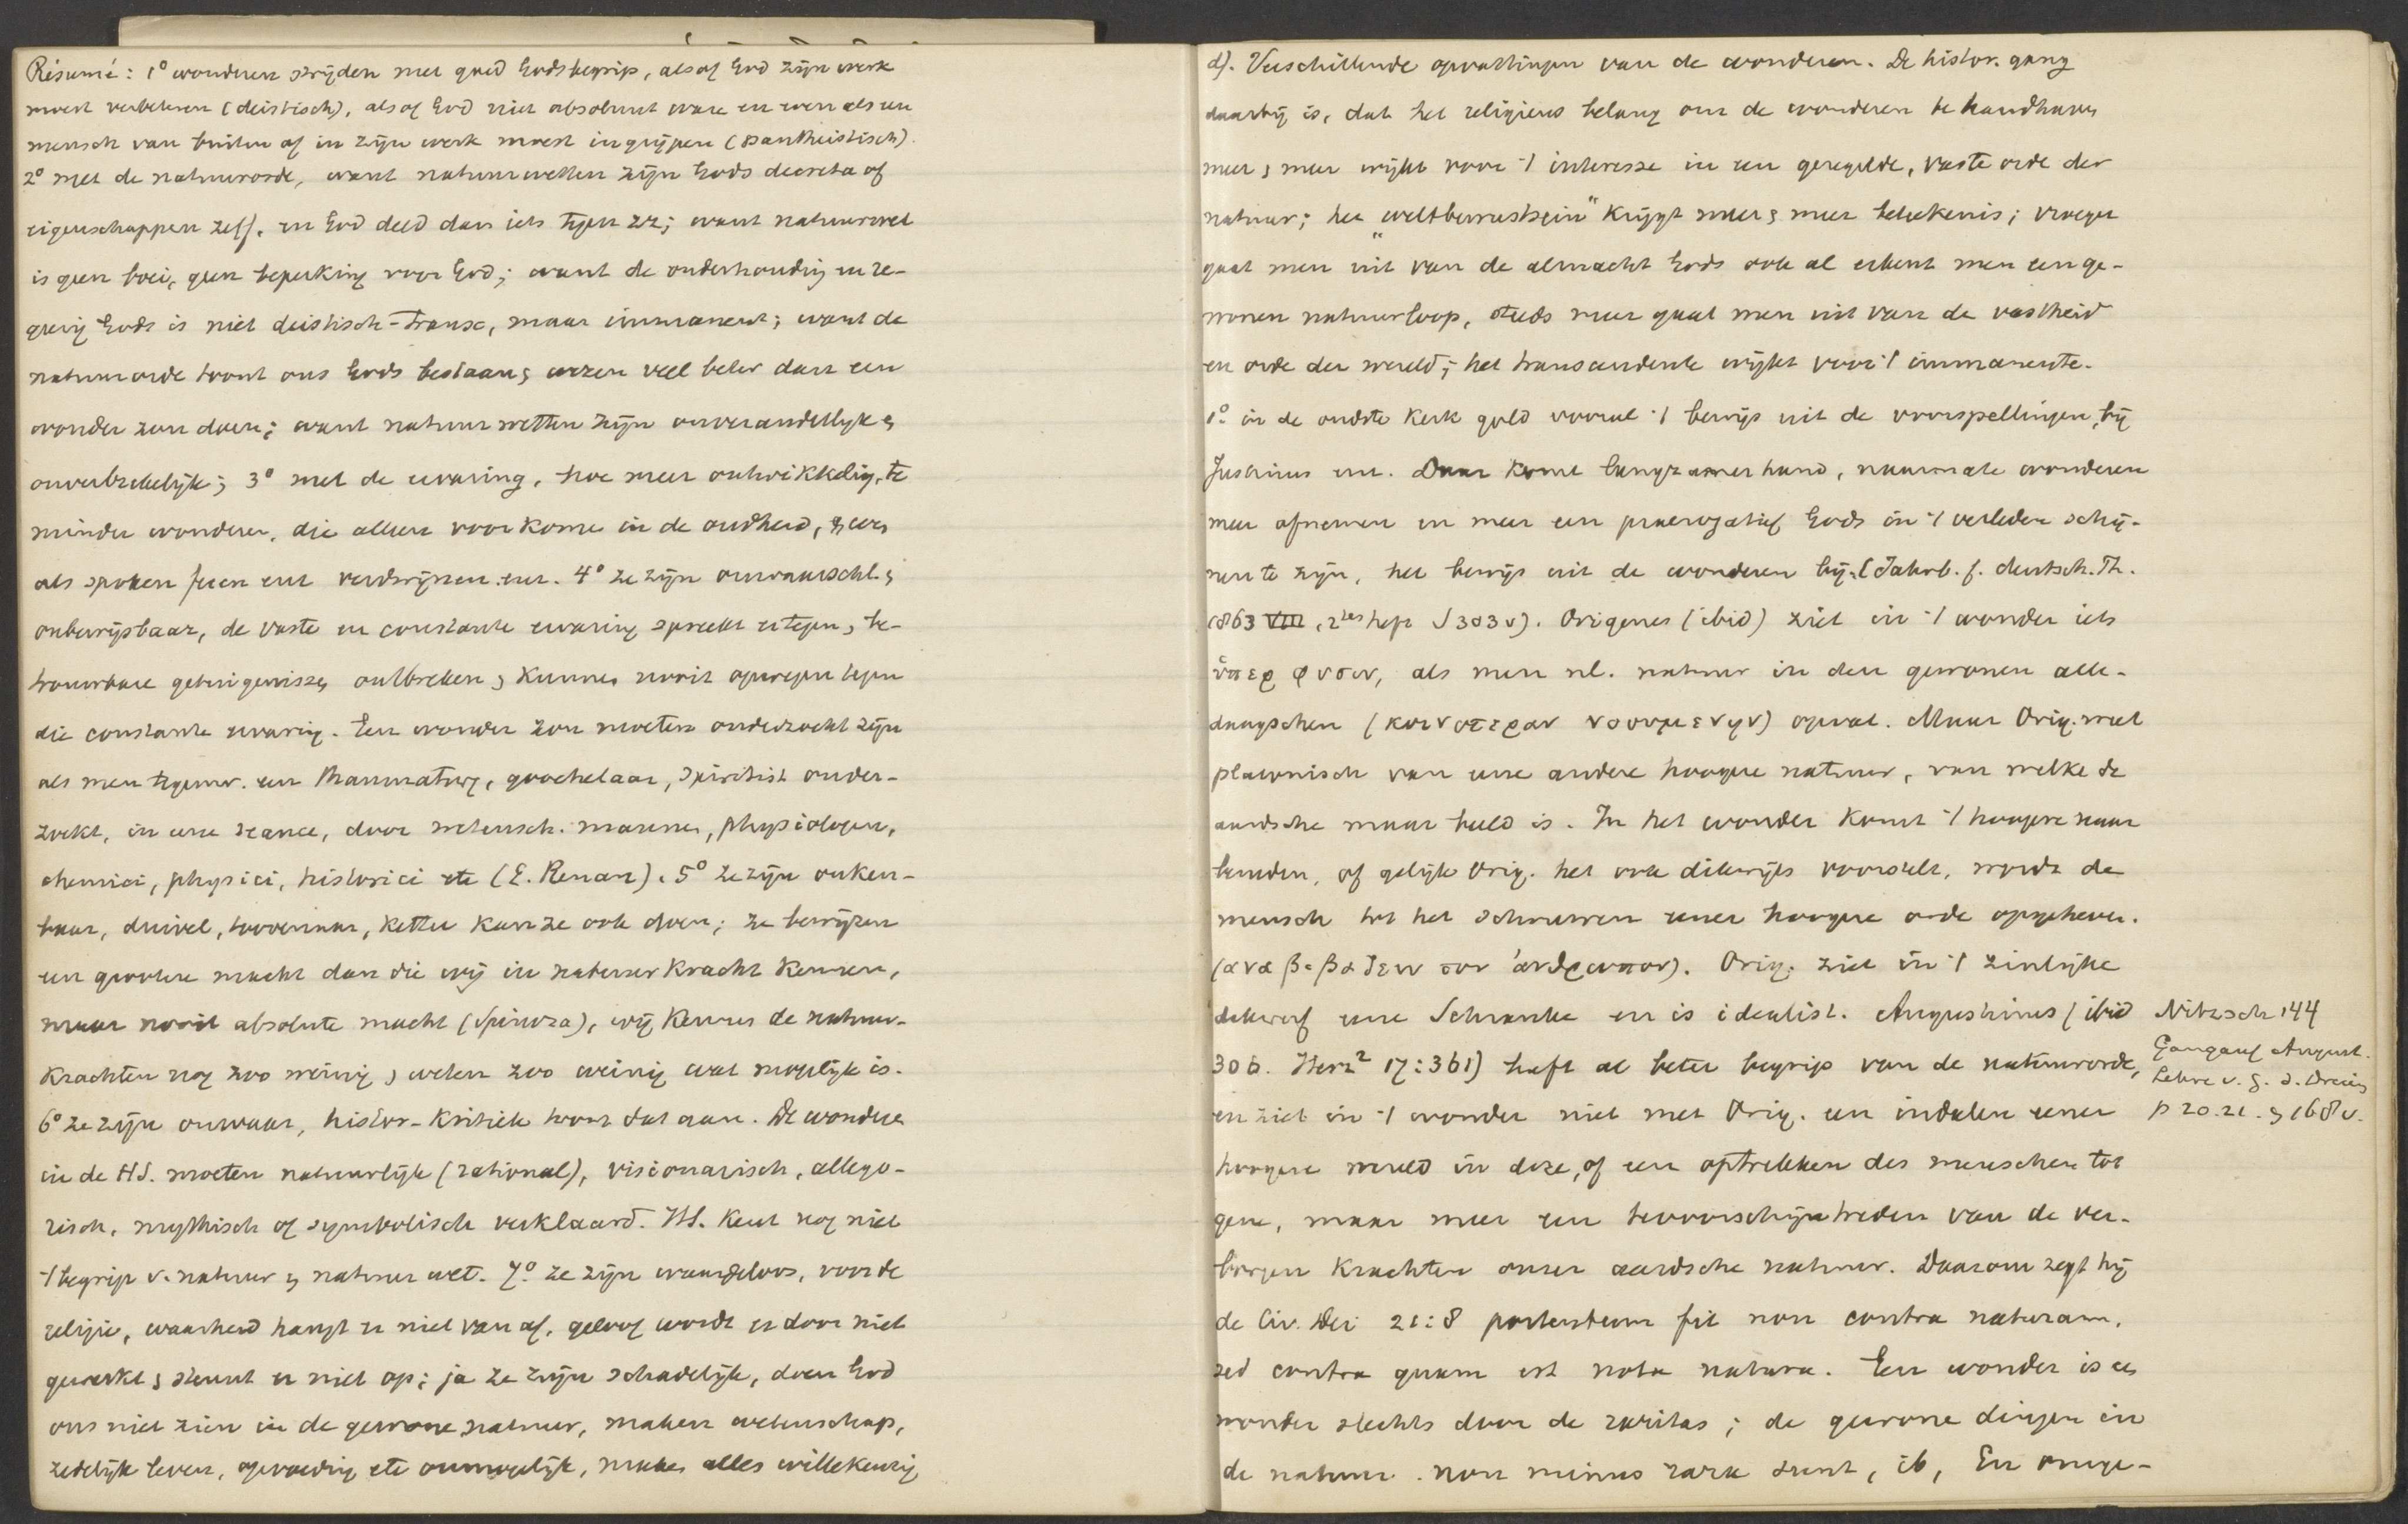 Résumé: 1° wonderen strijden met goed Godsbegrip, alsof God zijn werk
moest verbeteren (deistisch), alsof God niet absoluut ware en even als een
mensch van buiten af in zijn werk moest ingrijpen (pantheistisch).
2° met de natuurorde, want natuurwetten zijn Gods decreta of
eigenschappen zelf, en God deed dan iets tegen zz; want natuurwet
is geen boei, geen beperking voor God; want de onderhouding en re-
geering Gods is niet deistisch-transc, maar immanent; want de
natuurorde toont ons Gods bestaan & wezen veel beter dan een
wonder zou doen; want natuurwetten zijn onveranderlijk &
onverbrekelijk; 3° met de ervaring, hoe meer ontwikkeling, te
minder wonderen, die alleen voorkome in de oudheid, & even
als spoken feeen enz verdwijnen enz. 4° ze zijn onwaarschl. &
onbewijsbaar, de vaste en constante ervaring spreekt ertegen, be-
trouwbare getuigenissen ontbreken & kunnen nooit opwegen tegen
die constante ervaring. Een wonder zou moeten onderzocht zijn
als men tegenw. een thaumaturg, goochelaar, spiritist onder-
zoekt, in eene seance, door wetensch. mannen, physiologen,
chemici, physici, historici etc (E. Renan). 5° ze zijn onken-
baar, duivel, toovenaar, ketter kan ze ook doen; ze bewijzen
een grootere macht dan die wij in natuurkracht kennen,
maar nooit absolute macht (Spinoza), wij kennen de natuur-
krachten nog zoo weinig & weten zoo weinig wat mogelijk is.
6° ze zijn onwaar, histor-kritiek toont dat aan. De wonderen
in de HS. moeten natuurlijk (rational), visionarisch, allego-
risch, mythisch of symbolisch verklaard. HS. kent nog niet
't begrip v. natuur & natuurwet. 7° ze zijn waardeloos, voor de
religie, waarheid hangt er niet van af, geloof wordt er door niet
gewerkt & steunt er niet op; ja ze zijn schadelijk, doen God
ons niet zien in de gewone natuur, maken wetenschap,
zedelijk leven, opvoeding etc onmogelijk, maken alles willekeurig
d). Verschillende opvattingen van de wonderen. De histor. gang
daarbij is, dat het religieus belang om de wonderen te handhaven
meer & meer wijkt voor 't interesse in een geregelde, vaste orde der
natuur; het „weltbewustsein" krijgt meer & meer beteekenis; vroeger
gaat men uit van de almacht Gods ook al erkent men een ge-
wonen natuurloop, steeds meer gaat men uit van de vastheid
en orde der wereld; het transcendente wijkt voor 't immanente.
1° in de oudste kerk gold vooral 't bewijs uit de voorspellingen, bij
Justinus enz. Daar komt langzamerhand, naarmate wonderen
meer afnemen en meer een praerogatief Gods in 't verleden schij-
nen te zijn, het bewijs uit de wonderen bij. (Jahrb. f. deutsch. Th.
1863 VIII, 2tes heft S 303 v). Origenes (ibid) ziet in 't wonder iets
ὑπερ φυσιν, als men nl. natuur in den gewonen alle-
daagschen (κοινοτεραν νοουμενην) opvat. Maar Orig. weet
platonisch van eene andere hoogere natuur, van welke de
aardsche maar beeld is. In het wonder komt 't hoogere naar
beneden, of gelijk Orig. het ook dikwijls voorstelt, wordt de
mensch tot het schouwen eener hoogere orde opgeheven.
(αναβιβαζειν τον ἀνθρωπον). Orig. ziet in 't zinlijke
dikwerf eene Schranke en is idealist. Augustinus (ibid
306. Herz² 17:361) heeft al beter begrip van de natuurorde,
en ziet in 't wonder niet met Orig. een indalen eener
hoogere wereld in deze, of een optrekken des menschen tot
gene, maar meer een tevoorschijntreden van de ver-
borgen krachten onzer aardsche natuur. Daarom zegt hij
de Civ. Dei 21:8 portentum fit non contra naturam,
sed contra quam est nota natura. Een wonder is een
wonder slechts door de raritas; de gewone dingen in
de natuur non minus rara sunt, ib, En omge-
Nitzsch 144
Gangauf August.
Lehre v. G. d. Dreiein
p 20.21. & 168 v.